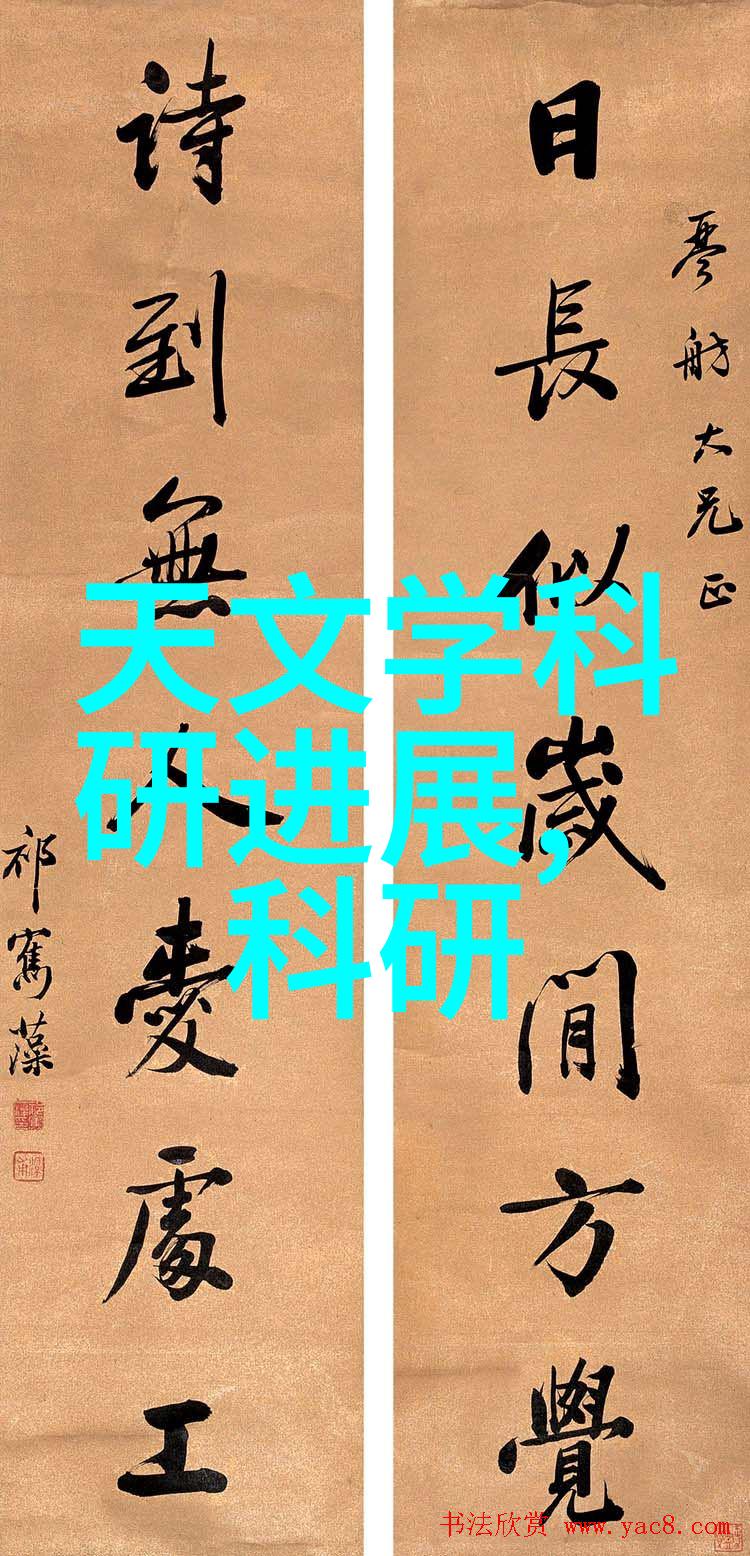 日長似歲閒方覺
琴舫大兄正
詩到無人愛處工
祁寯藻
天文学科
研进展,
科研
书法欣赏 www.yac8.com